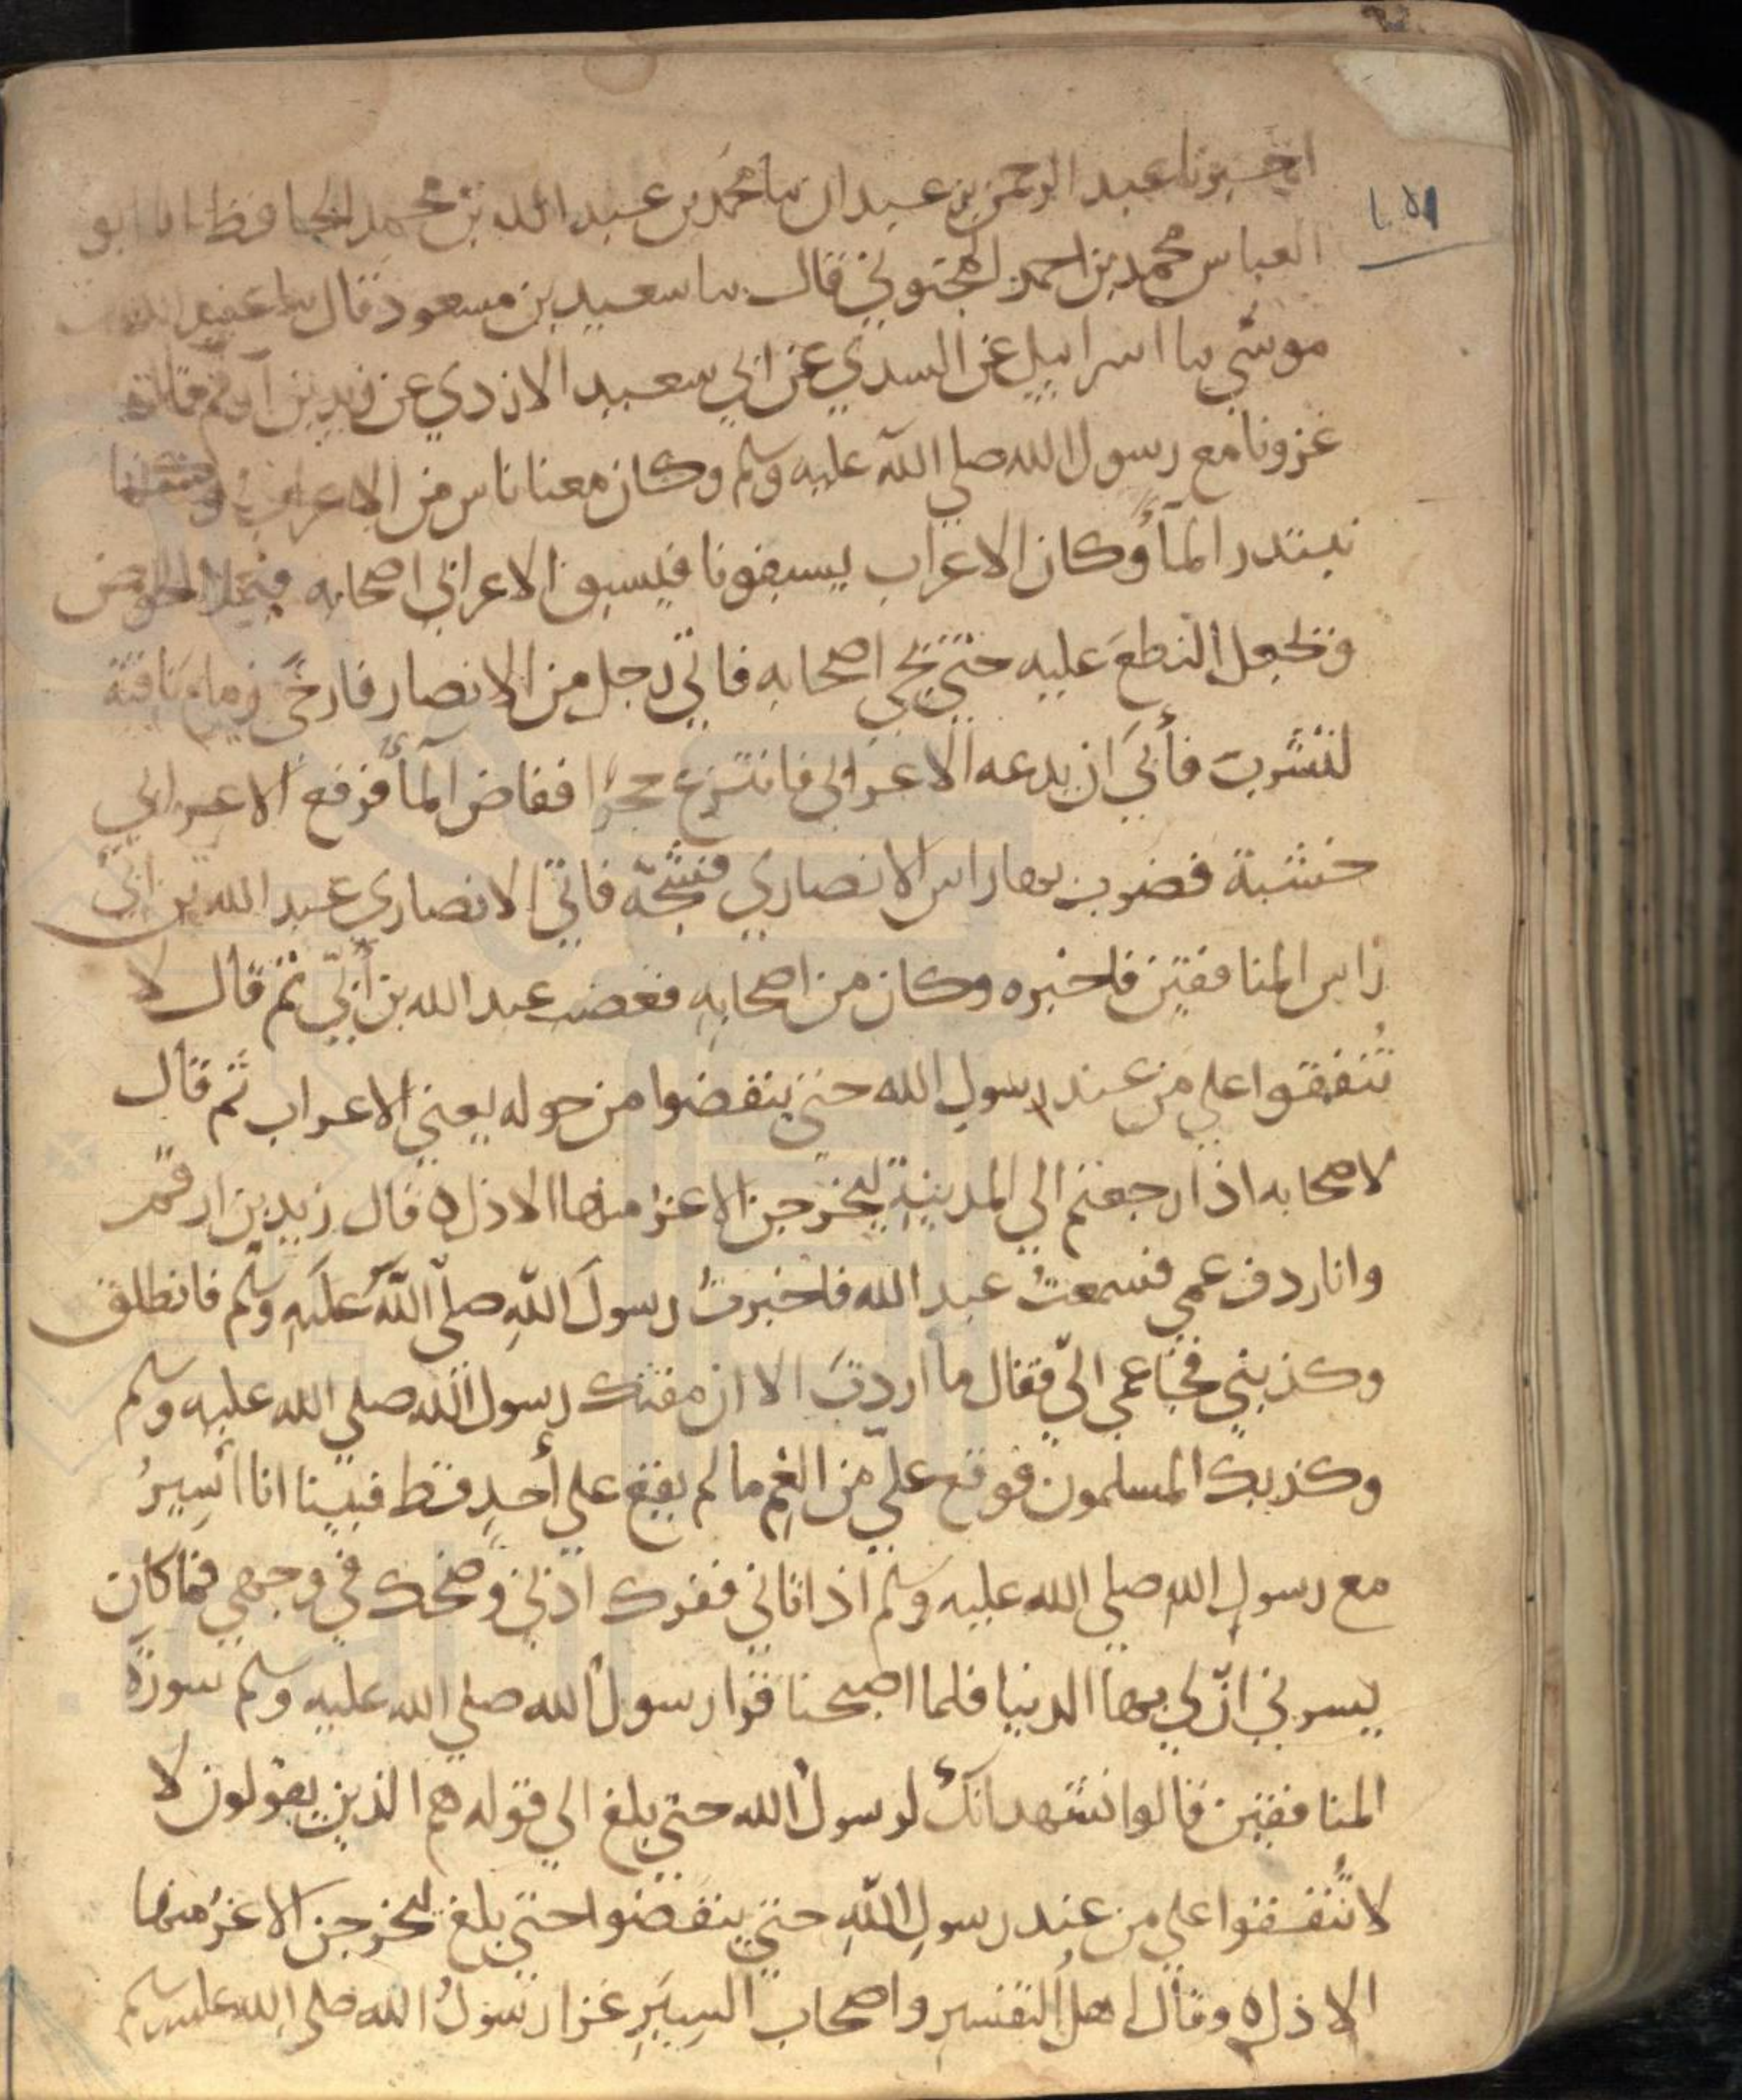 ١٥١
اخبرنا عبد الرحمن بن عبدان نا محمد بن عبد الله بن محمد الحافظ انا ابو
العباس محمد بن احمد المحبوبي قال نا سعيد بن مسعود قال نا عبيد الله بن
موسى نا اسراييل عن السدي عن ابي سعيد الازدي عن زيد بن ارقم قال
غزونا مع رسول الله صلى الله عليه وسلم وكان معنا ناس من الاعراب وكنا
نبتدر المآ وكان الاعراب يسبقونا فيسبق الاعرابي اصحابه فيملا الحوض
ويجعل النطع عليه حتى يجي اصحابه فاتى رجل من الانصار فارخى زمام ناقته
لتشرب فأبى ان يدعه الاعرابي فانتزع حجرا ففاض المآ فرفع الاعرابي
خشبة فضرب بها راس الانصاري فشجّه فاتى الانصاري عبد الله بن ابيّ
راس المنافقين فاخبره وكان من اصحابه فغضب عبد الله بن أبيّ ثم قال لا
تُنفقوا على من عند رسول الله حتى ينفضوا من حوله يعني الاعراب ثم قال
لاصحابه اذا رجعتم الى المدينة ليخرجن الاعز منها الاذل ٥ قال زيد بن ارقم
وانا ردف عمي فسمعتُ عبد الله فاخبرتُ رسولَ اللهِ صلّى اللهُ عليَهِ وسلّم فانطلق
وكذبني فجا عمي اليّ فقال ما اردتَ الا ان مقتك رسول الله صلى الله عليه وسلم
وكذبك المسلمون فوقع عليّ من الغم ما لم يقع على أحدٍ قط فبينا انا أسيرُ
مع رسول الله صلى الله عليه وسلم اذ اتاني ففرك اذني وضحك في وجهي فما كان
يسرني انّ لي بها الدنيا فلما اصبحنا قرا رسول الله صلى الله عليه وسلم سورة
المنافقين قالوا نشهد انك لرسول الله حتى بلغ الى قوله هم الذين يقولون لا
لا تُنفقوا على من عند رسولِ اللهِ حتى ينفضوا حتى بلغ ليخرجن الاعزُ منها
الاذل ٥ وقال اهل التفسير واصحاب السِيَرِ غزا رسولُ الله صلى الله عليه وسلم